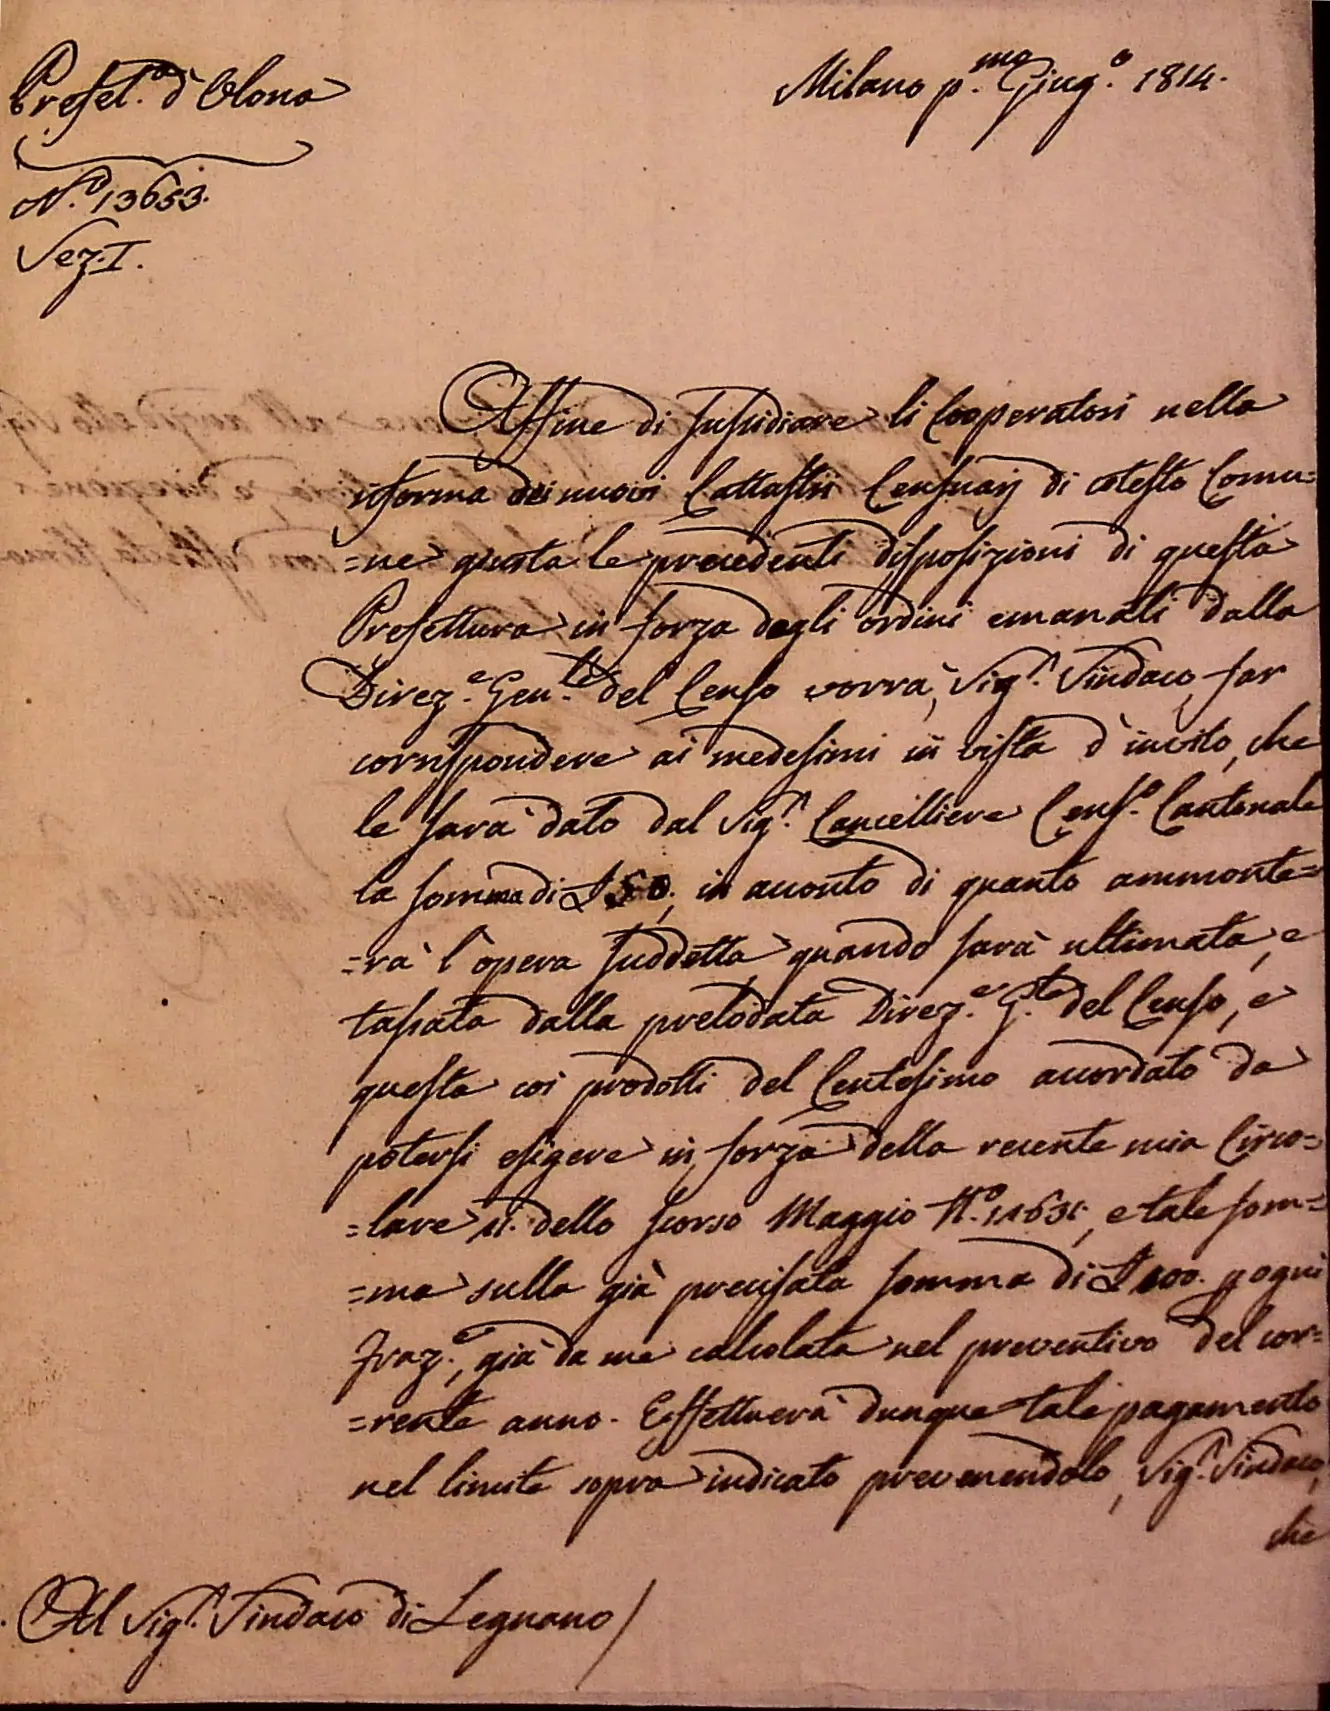 Prefet.ª d'Olona
Milano p.mo Giug.o 1814.
N.o 13653.
Sez. I.
Affine di sussidiare li Cooperatori nella
riforma dei nuovi Cattastri Censuarj di cotesto Comu=
=ne giusta le precedenti disposizioni di questa
Prefettura in forza degli ordini emanati dalla
Direz.e Gen.le del Censo vorrà, Sig.r Sindaco, far
corrispondere ai medesimi in vista d'invito, che
le sarà dato dal Sig.r Cancelliere Cens.o Cantonale
la somma di £ 50, in acconto di quanto ammonte=
=rà l'opera suddetta, quando sarà ultimata, e
tassata dalla prelodata Direz.e G.le del Censo, e
questa coi prodotti del Centesimo accordato da
potersi esigere in forza della recente mia Circo=
=lare 11. dello scorso Maggio N.o 11631, e tale som=
=ma sulla già precisata somma di £ 100. p ogni
Fraz.e, già da me calcolata nel preventivo del cor=
=rente anno. Effettuerà dunque tale pagamento
nel limite sopra indicato prevenendolo, Sig.r Sindaco,
che
Al Sig.r Sindaco di Legnano /